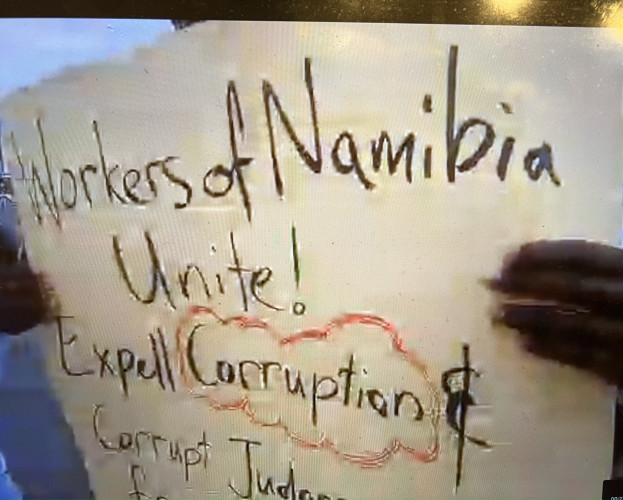 Workers of Namibia
Unite!
Expell Corruption &
Corrupt Judges